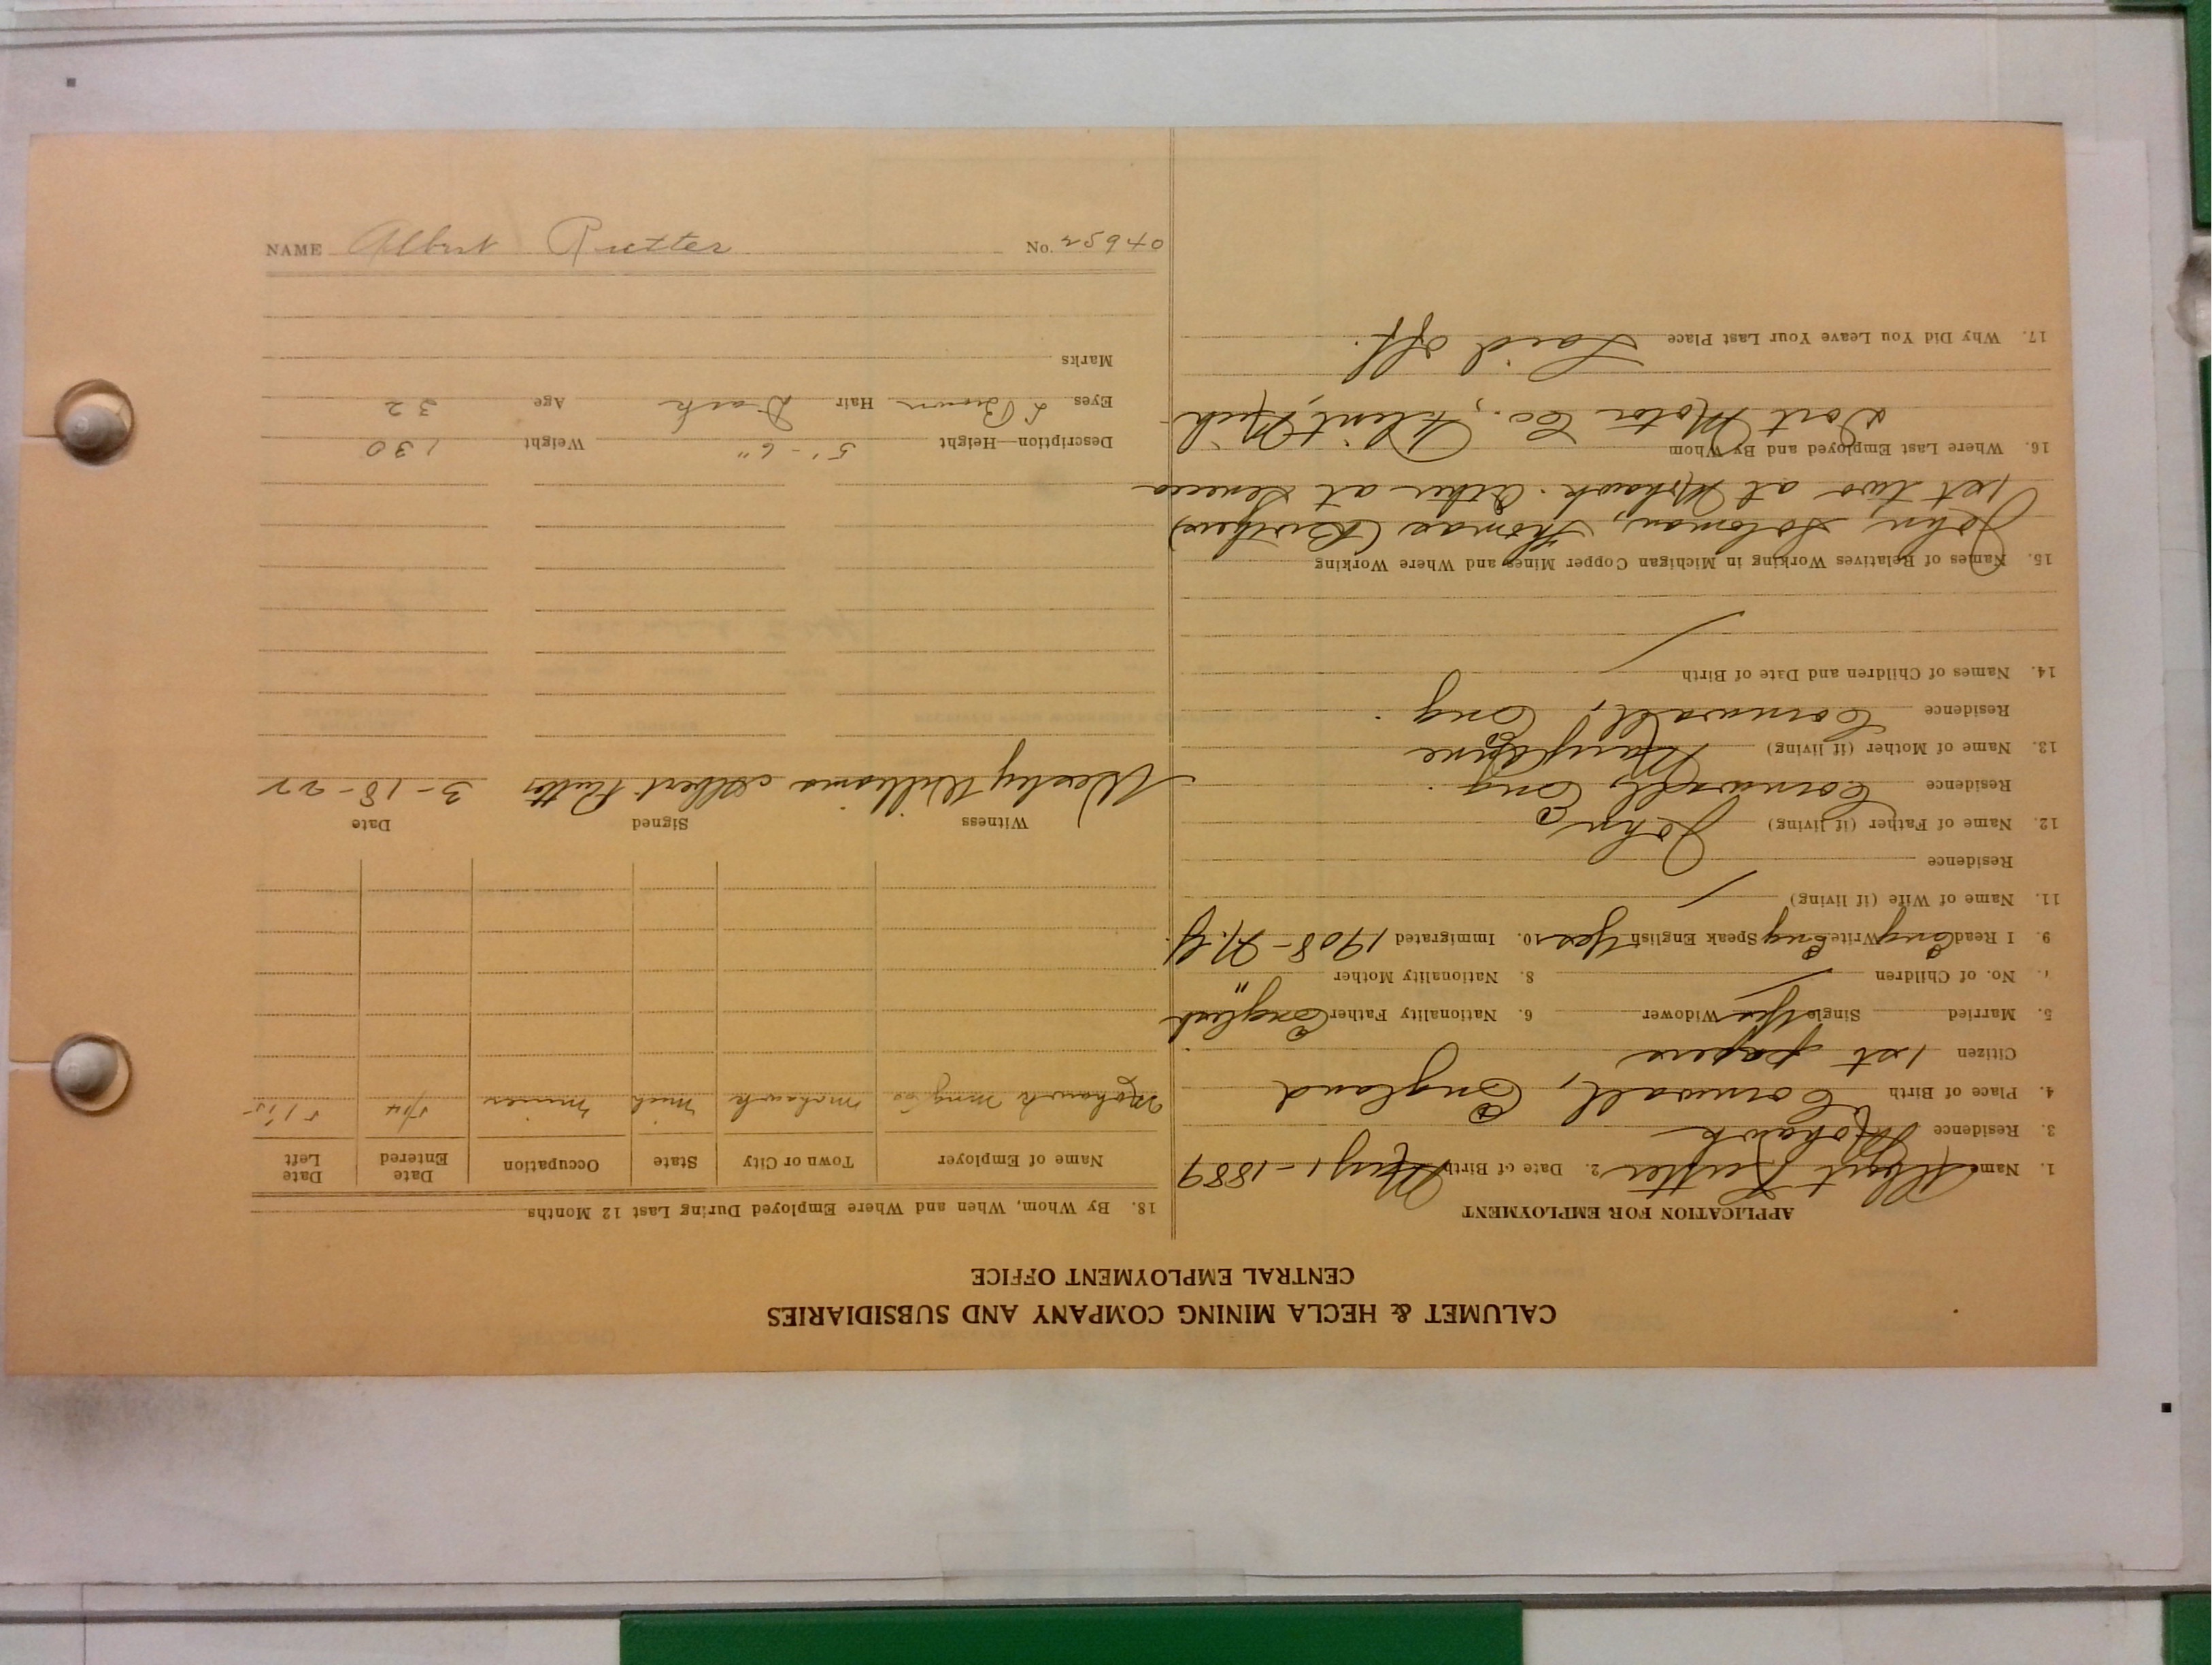 CALUMET & HECLA MINING COMPANY AND SUBSIDIARIES
CENTRAL EMPLOYMENT OFFICE
APPLICATION FOR EMPLOYMENT
1. Name Albert Rutter 2. Date of Birth May 1-1889
3. Residence Mohawk
4. Place of Birth Cornwall, England
Citizen 1st papers
5. Married Single Yes Widower 6. Nationality Father English
No. of Children 8. Nationality Mother "
9. I Read Eng Write Eng Speak English Yes 10. Immigrated 1908 - N.Y.
11. Name of Wife (if living)
Residence
12. Name of Father (if living) John
Residence Cornwall, Eng.
13. Name of Mother (if living) Mary Jane
Residence Cornwall, Eng.
14. Names of Children and Date of Birth
15. Names of Relatives Working in Michigan Copper Mines and Where Working
John, Soloman, Thomas (Brothers)
1st two at Mohawk. Other at Seneca
16. Where Last Employed and By Whom
Dort Motor Co., Flint, Mich
17. Why Did You Leave Your Last Place Laid off.
18. By Whom, When and Where Employed During Last 12 Months
Name of Employer Town or City State Occupation Date Entered Date Left
Mohawk Ming Co Mohawk Mich miner
Witness Signed Date
Wesley Williams Albert Rutter 3-18-22
Description—Height 5'-6" Weight 130
Eyes L Brown Hair Dark Age 32
Marks
NAME Albert Rutter No. 25940